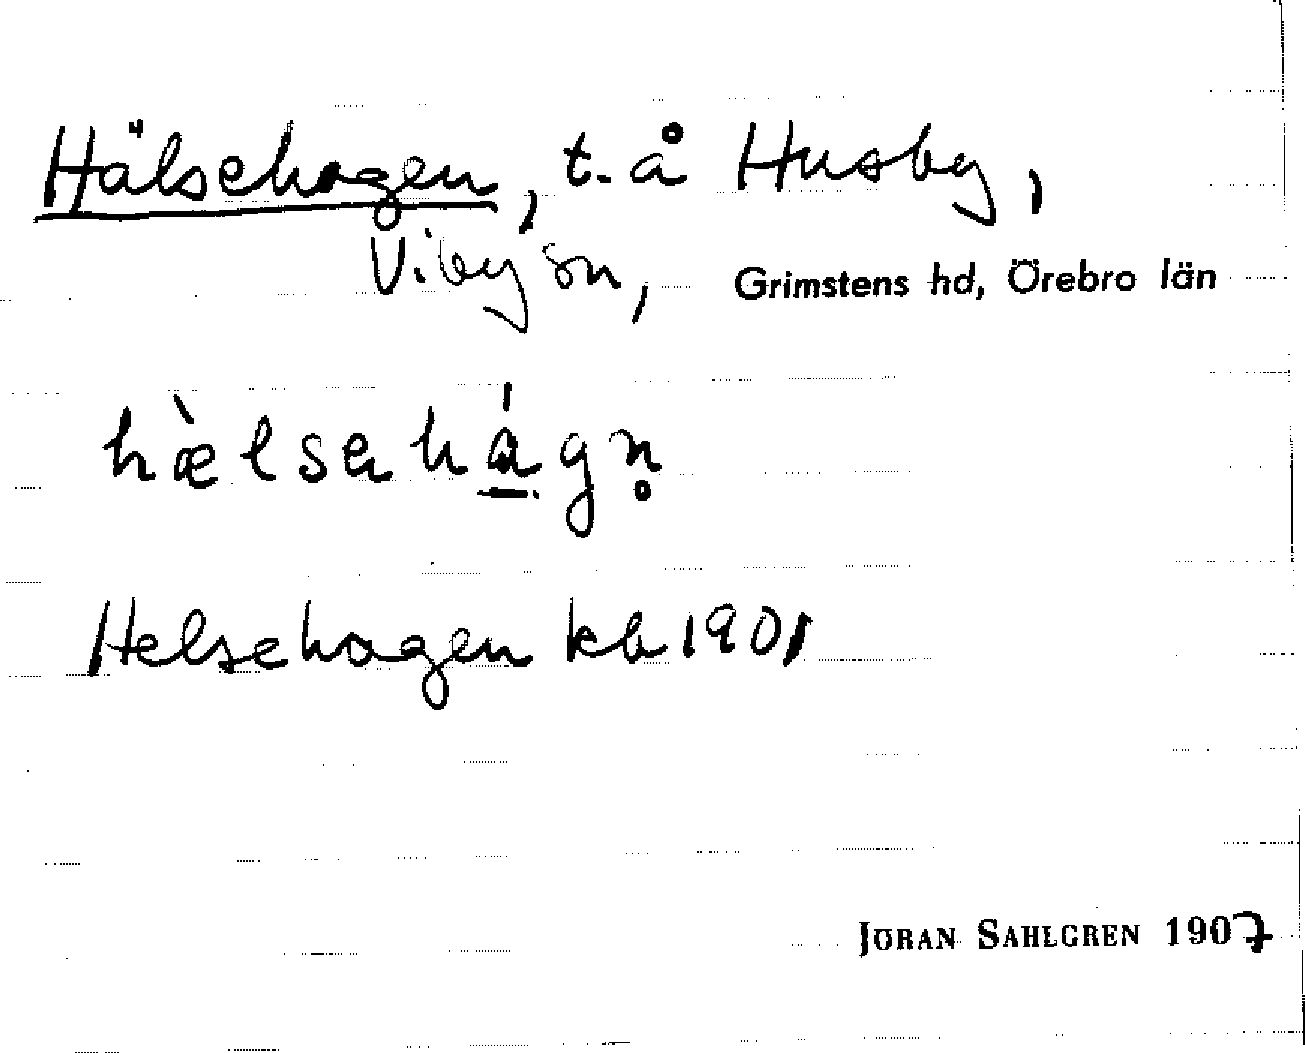 Hälsehagen, t. å Husby,
Viby sn, Grimstens hd, Örebro län
hæ̀lsahág̣n̥
Helsehagen kb 1901
JÖRAN SAHLGREN 1907